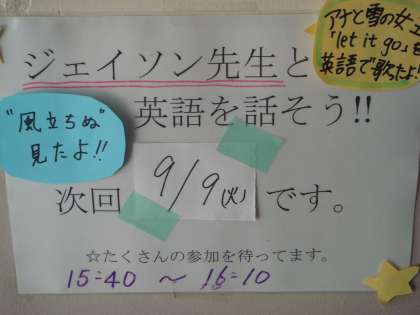 ジェイソン先生と
英語を話そう!!
次回 9/9(火) です。
☆たくさんの参加を待ってます。
15:40 ～ 16:10
"風立ちぬ"
見たよ!!
アナと雪の女
「let it go」を
英語で歌たよ!